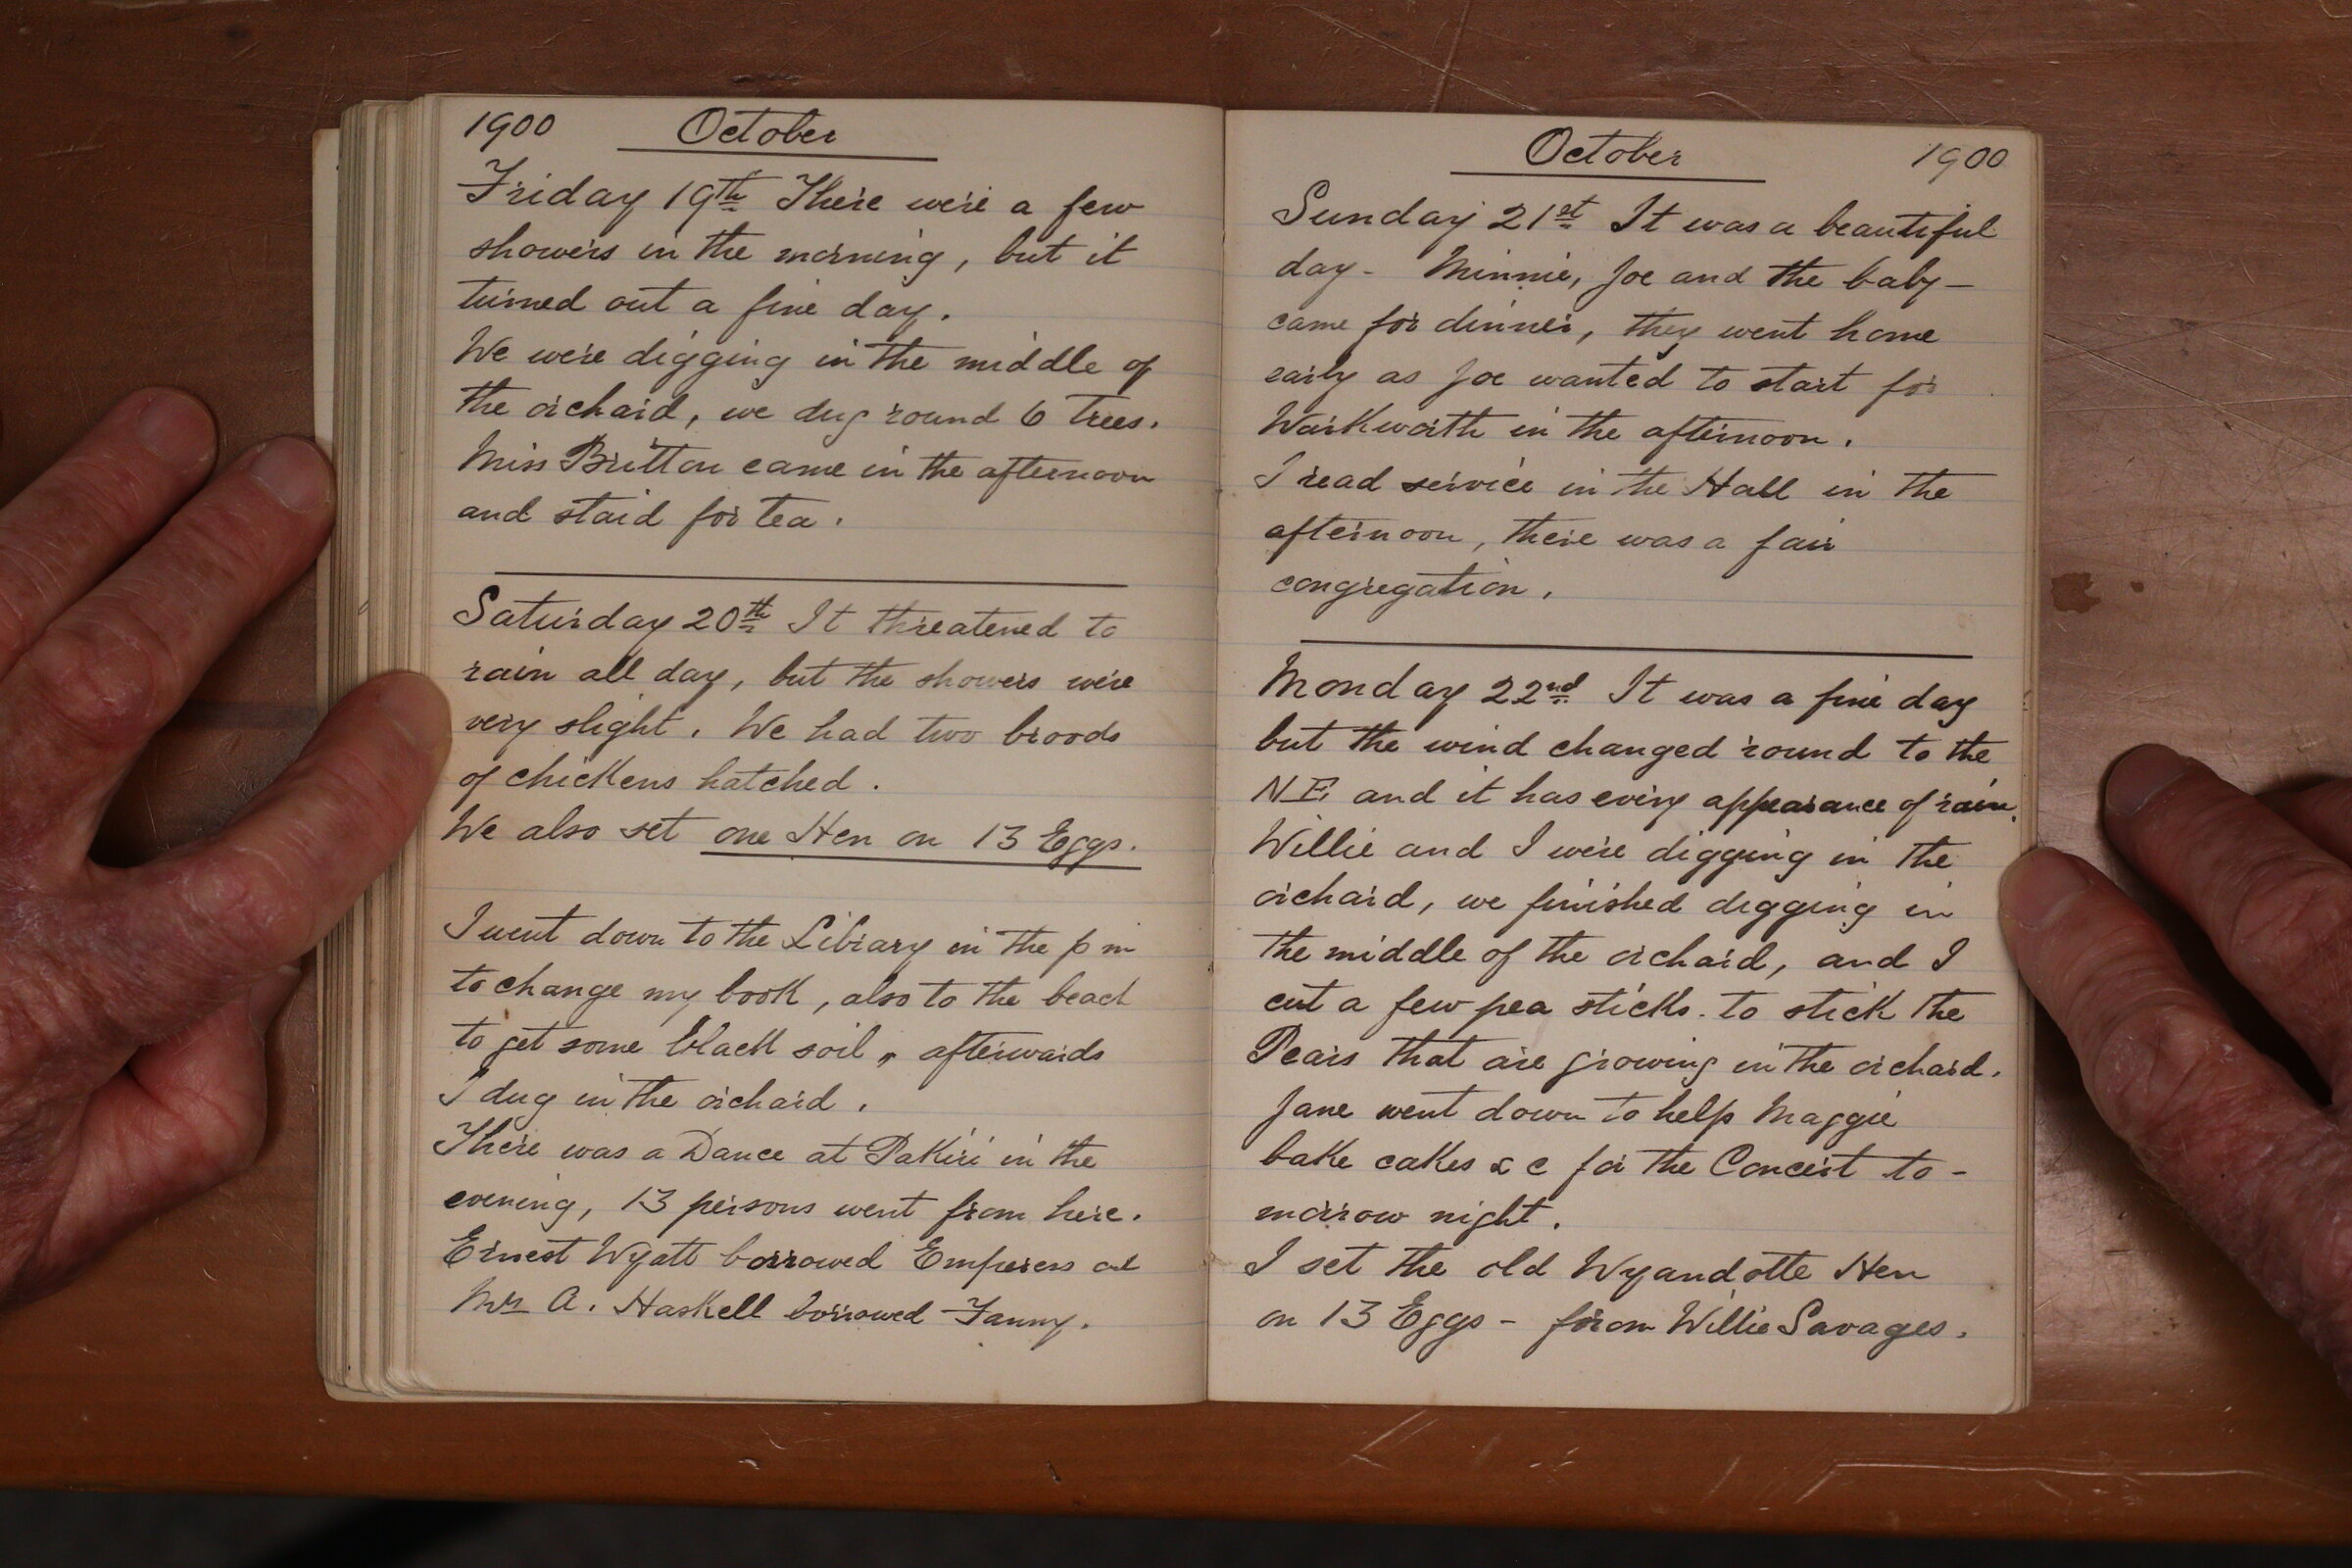 1900 October
Friday 19th There were a few
showers in the morning, but it
turned out a fine day.
We were digging in the middle of
the orchard, we dug round 6 trees.
Miss Britton came in the afternoon
and staid for tea.
Saturday 20th It threatened to
rain all day, but the showers were
very slight. We had two broods
of chickens hatched.
We also set one Hen on 13 Eggs.
I went down to the Library in the pm
to change my book, also to the beach
to get some black soil, afterwards
I dug in the orchard.
There was a Dance at Pakiri in the
evening, 13 persons went from here.
Ernest Wyatt borrowed
Mr A. Haskell borrowed Fanny.
October 1900
Sunday 21st It was a beautiful
day - Minnie, Joe and the baby -
came for dinner, they went home
early as Joe wanted to start for
Warkworth in the afternoon.
I read service in the Hall in the
afternoon, there was a fair
congregation.
Monday 22nd It was a fine day
but the wind changed round to the
NE, and it has every appearance of rain.
Willie and I were digging in the
orchard, we finished digging in
the middle of the orchard, and I
cut a few pea sticks. to stick the
Pears that are growing in the orchard.
Jane went down to help Maggie
bake cakes &c for the Concert to-
morrow night.
I set the old Wyandotte Hen
on 13 Eggs - from Willie Savages.